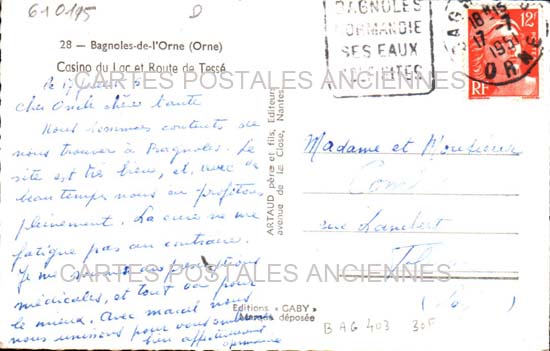 610195
D
28 - Bagnoles-de-l'Orne (Orne)
Casino du Lac et Route de Tessé
CARTES POSTALES ANCIENNES
cher Oncle chère tante
Nous sommes contents de
nous trouver à Bagnoles. Le
site est très bien, et, avec de
beau temps nous en profitons
pleinement. La cure ne me
fatigue pas au contraire.
Je me soumets aux prescriptions
médicales, et tout va pour
le mieux. Avec nous
nous unissons pour vous
bien affectueusement
ARTAUD père et fils, Editeurs
avenue de la Close, Nantes
Editions "GABY"
déposée
BAGNOLES
NORMANDIE
SES EAUX
SES SITES
18H15
17-7
1951
ORNE
12F
RF
Madame et Monsieur
rue Lambert
CARTES POSTALES ANCIENNES
BAG 403 30F